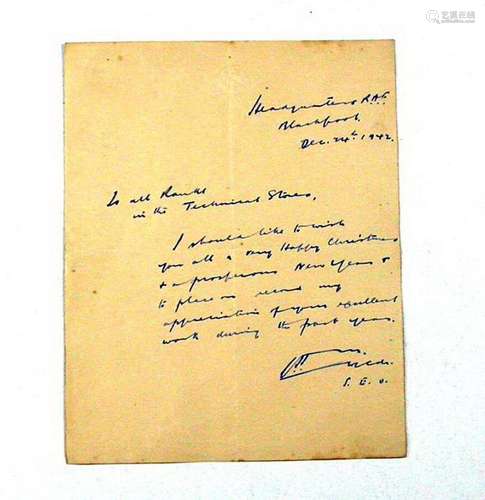 艺狐在线
Headquarters R.A.F.
Blackpool.
Dec. 24th. 1942.
To all Ranks
in the Technical Stores,
I should like to wish
you all a very Happy Christmas
& a prosperous New Year &
to place on record my
appreciation of your excellent
work during the past year.
S. E. O.